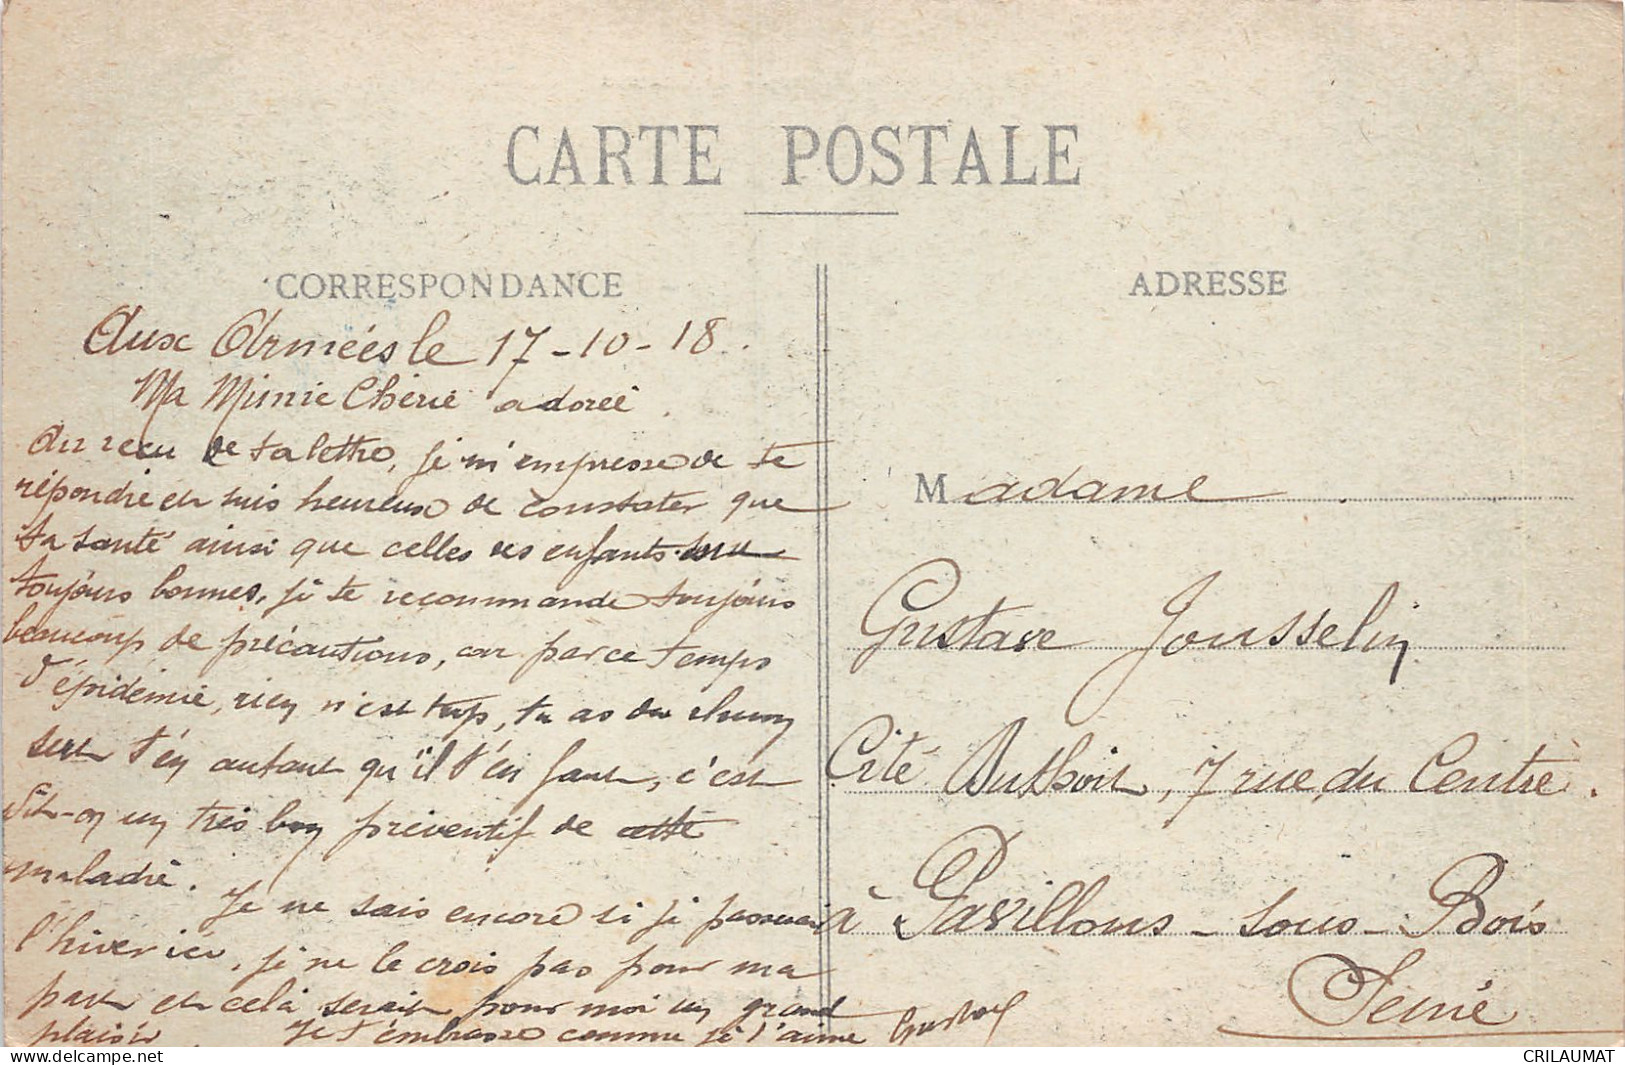 CARTE POSTALE
CORRESPONDANCE
Aux Armées le 17-10-18.
Ma Mimie Chérie adorée.
Au reçu de ta lettre, je m'empresse de te
répondre et suis heureux de constater que
ta santé ainsi que celles des enfants sont
toujours bonnes, je te recommande toujours
beaucoup de précautions, car par ce temps
d'épidémie, rien n'est trop, tu as du rhum
sers t'en autant qu'il t'en faut, c'est
dit-on un très bon préventif de cette
maladie.
Je ne sais encore si je passerai
l'hiver ici, je ne le crois pas pour ma
part et celà serait pour moi un grand
plaisir. Je t'embrasse comme je t'aime Gustave
ADRESSE
Madame
Gustave Jousselin
Cité, 7 rue du Centre.
à Pavillons-sous-Bois
Seine
delcampe.net
CRILAUMAT